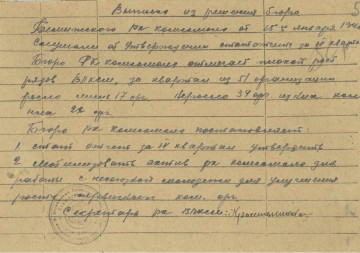 Выписка из решения бюро
рк комсомола от 15го января 194
Слушали об утверждении статотчета за IV квартал
Бюро РК комсомола отмечает плохой рост
рядов ВЛКСМ, за квартал из 51 организации
росло лишь 17 орг. Не росло 34 орг. из них кол
хоза 22 орг.
Бюро рк комсомола постановляет:
1. стат отчет за IV квартал утвердить
2. Мобилизовать актив рк комсомола для
работы с несоюзной молодежи для улучшения
роста первичных ком. орг.
Секретарь рк ВЛКСМ: